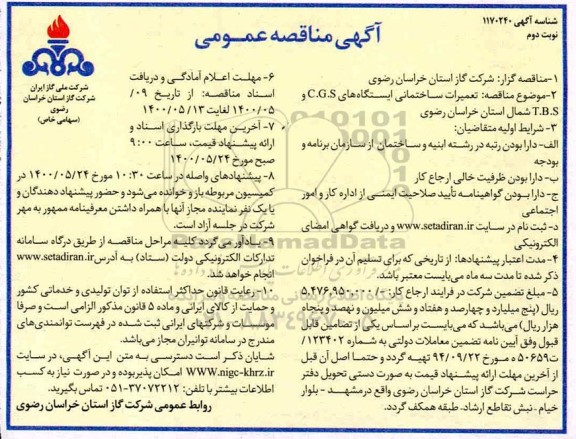 شناسه آگهی ۱۱۷۰۲۴۰
نوبت دوم
آگهی مناقصه عمومی
شرکت ملی گاز ایران
شرکت گاز استان خراسان رضوی
(سهامی خاص)
۱-مناقصه گزار: شرکت گاز استان خراسان رضوی
۲-موضوع مناقصه: تعمیرات ساختمانی ایستگاه‌های C.G.S و
T.B.S شمال استان خراسان رضوی
۳- شرایط اولیه متقاضیان:
الف- دارا بودن رتبه در رشته ابنیه و ساختمان از سازمان برنامه و
بودجه
ب- دارا بودن ظرفیت خالی ارجاع کار
ج- دارا بودن گواهینامه تأیید صلاحیت ایمنی از اداره کار و امور
اجتماعی
د- ثبت نام در سایت www.setadiran.ir و دریافت گواهی امضای
الکترونیکی
۴- مدت اعتبار پیشنهادها: از تاریخی که برای تسلیم آن در فراخوان
ذکر شده تا مدت سه ماه می‌بایست معتبر باشد.
۵- مبلغ تضمین شرکت در فرایند ارجاع کار: -/۵.۴۷۶.۹۵۰.۰۰۰
ریال (پنج میلیارد و چهارصد و هفتاد و شش میلیون و نهصد و پنجاه
هزار ریال) می‌باشد که می‌بایست بر اساس یکی از تضامین قابل
قبول وفق آیین نامه تضمین معاملات دولتی به شماره ۱۲۳۴۰۲/
ت ۵۰۶۵۹ ه مورخ ۹۴/۰۹/۲۲ تهیه گردد و حتما اصل آن قبل
از آخرین مهلت ارائه پیشنهاد قیمت به صورت دستی تحویل دفتر
حراست شرکت گاز استان خراسان رضوی واقع در مشهد - بلوار
خیام - نبش تقاطع ارشاد- طبقه همکف گردد.
۶- مهلت اعلام آمادگی و دریافت
اسناد مناقصه: از تاریخ ۰۹/
۱۴۰۰/۰۵ لغایت ۱۴۰۰/۰۵/۱۳
۷- آخرین مهلت بارگذاری اسناد و
ارائه پیشنهاد قیمت، ساعت ۹:۰۰
صبح مورخ ۱۴۰۰/۰۵/۲۴
۸- پیشنهادهای واصله در ساعت ۱۰:۳۰ مورخ ۱۴۰۰/۰۵/۲۴ در
کمیسیون مربوطه باز و خوانده می‌شود و حضور پیشنهاد دهندگان و
یا یک نفر نماینده مجاز آنها با همراه داشتن معرفینامه ممهور به مهر
شرکت در جلسه آزاد است.
۹- یادآوری گردد کلیه مراحل مناقصه از طریق درگاه سامانه
تدارکات الکترونیکی دولت (ستاد) به آدرس www.setadiran.ir
انجام خواهد شد.
۱۰- رعایت قانون حداکثر استفاده از توان تولیدی و خدماتی کشور
و حمایت از کالای ایرانی و ماده ۵ قانون مذکور الزامی است و صرفا
محصولات و شرکتهای ایرانی ثبت شده در فهرست توانمندی‌های
مندرج در سامانه توانیران مجاز می‌باشد.
شایان ذکر است دسترسی به متن این آگهی، در سایت
WWW.nigc-khrz.ir امکان پذیر بوده و در صورت نیاز به کسب
اطلاعات بیشتر با تلفن: ۳۷۰۷۲۲۱۲-۰۵۱ تماس بگیرید.
روابط عمومی شرکت گاز استان خراسان رضوی